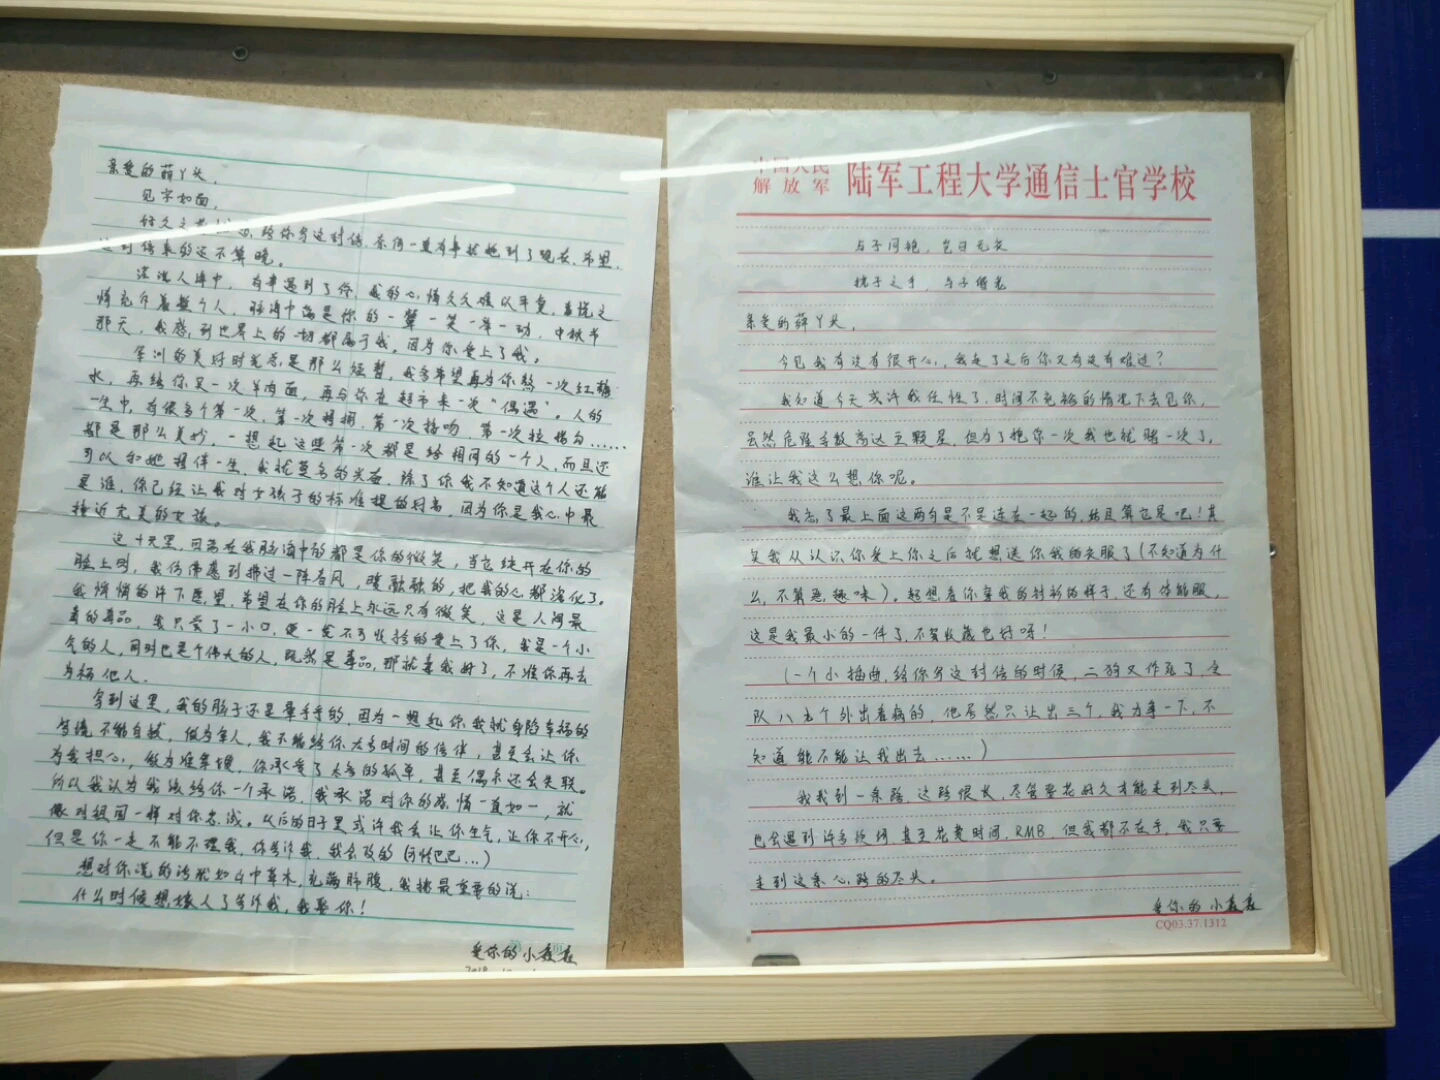 亲爱的薛丫头，
见字如面，
给你写这封信，奈何一直有事拖到了现在，希望，
这封信来的还不算晚。
茫茫人海中，有幸遇到了你，我的心情久久难以平复，喜悦之
情充斥着整个人，脑海中满是你的一颦一笑一举一动，中秋节
那天，我感到世界上的一切都属于我，因为你爱上了我。
的美好时光总是那么短暂，我多希望再为你熬一次红糖
水，再给你买一次羊肉面，再与你在超市来一次“偶遇”。人的
一生中，有很多个第一次，第一次相拥，第一次接吻，第一次拉指勾……
都是那么美妙，一想起这些第一次都是给相同的一个人，而且还
可以和她相伴一生，我就莫名的兴奋，除了你我不知道这个人还能
是谁，你已经让我对女孩子的标准提的好高，因为你是我心中最
接近完美的女孩。
这十天里，回荡在我脑海中的都是你的微笑，当它绽开在你的
脸上时，我仿佛感到拂过一阵春风，暖融融的，把我的心都溶化了。
我悄悄的许下愿望，希望在你的脸上永远只有微笑，这是人间最
毒的毒品，我只尝了一小口，便一发不可收拾的爱上了你，我是一个小
气的人，同时也是个伟大的人，既然是毒品，那就毒我好了，不准你再去
祸他人。
写到这里，我的脑子还是晕乎乎的，因为一想起你我就身陷幸福的
不能自拔，做为军人，我不能给你太多时间的陪伴，甚至会让你
为我担心，做为准军嫂，你承受了太多的孤单，甚至偶尔还会失联。
所以我认为我该给你一个承诺，我承诺对你的感情一直如一，就
像对祖国一样对你忠诚。以后的日子里或许我会让你生气，让你不开心，
但是你一定不能不理我，你告诉我，我会改的（可怜巴巴…）
想对你说的话就如山中草木，充满肺腑，我捡最重要的说：
什么时候想嫁人了告诉我，我娶你！
爱你的小磊磊
中国人民
解放军 陆军工程大学通信士官学校
与子同袍，岂曰无衣
执子之手，与子偕老
亲爱的薛丫头，
今见我有没有很开心，我走了之后你又有没有难过？
我知道今天或许我任性了，时间不充裕的情况下去见你，
虽然危险系数高达五颗星，但为了抱你一次我也就赌一次了，
谁让我这么想你呢。
我忘了最上面这两句是不是连在一起的，姑且算它是吧！其
实我从认识你爱上你之后就想送你我的衣服了（不知道为什
么，不算恶趣味）。超想看你穿我的衬衫的样子，还有体能服，
这是我最小的一件了，不穿收藏也好呀！
（一个小插曲，给你写这封信的时候，二狗又作死了，全
队八九个外出看病的，他居然只让出三个，我力争一下，不
知道能不能让我出去……）
我找到一条路，这路很长，尽管要花好久才能走到尽头，
也会遇到许多坎坷，甚至花费时间，RMB，但我都不在乎，我只要
走到这条心路的尽头。
爱你的小磊磊
CQ03.37.1312